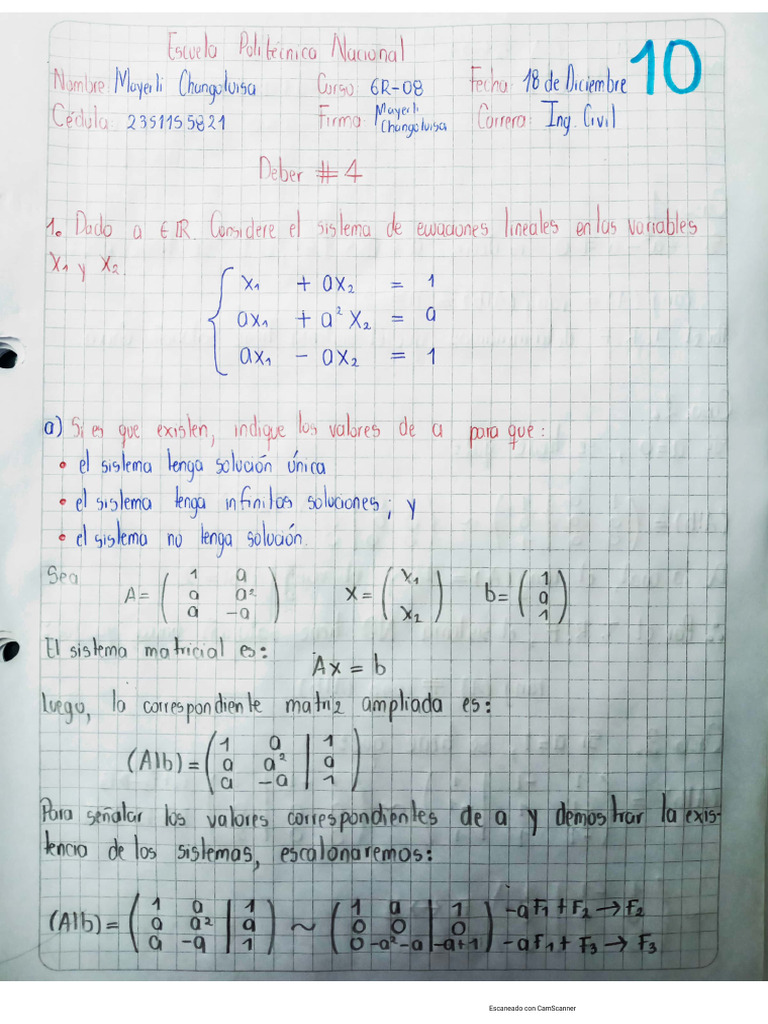 Escuela Politécnica Nacional
10
Nombre: Mayerli Changoluisa Curso: GR-08 Fecha: 18 de Diciembre
Cédula: 2351155821 Firma: Mayerli Changoluisa Carrera: Ing. Civil
Deber #4
1. Dado a ∈ IR. Considere el sistema de ecuaciones lineales en las variables
x₁ y x₂.
x₁ + ax₂ = 1
ax₁ + a² x₂ = a
ax₁ - ax₂ = 1
a) Si es que existen, indique los valores de a para que:
• el sistema tenga solución única
• el sistema tenga infinitas soluciones; y
• el sistema no tenga solución.
Sea A= ( 1 a ; a a² ; a -a ) x = ( x₁ ; x₂ ) b= ( 1 ; a ; 1 )
El sistema matricial es:
Ax = b
luego, la correspondiente matriz ampliada es:
(A|b) = ( 1 a | 1 ; a a² | a ; a -a | 1 )
Para señalar los valores correspondientes de a y demostrar la exis-
tencia de los sistemas, escalonaremos:
(A|b) = ( 1 a | 1 ; a a² | a ; a -a | 1 ) ~ ( 1 a | 1 ; 0 0 | 0 ; 0 -a²-a | -a+1 ) -aF₁ + F₂ → F₂
-aF₁ + F₃ → F₃
Escaneado con CamScanner